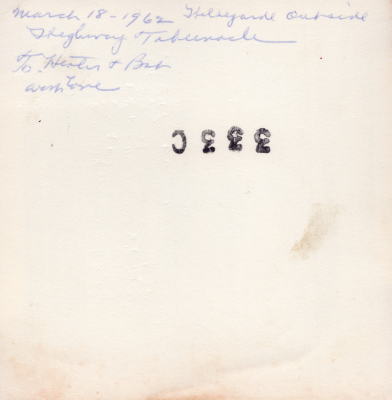 March 18-1962 Hildegarde Outside
Highway Tabernacle
To Hester & Bob
with love
333C